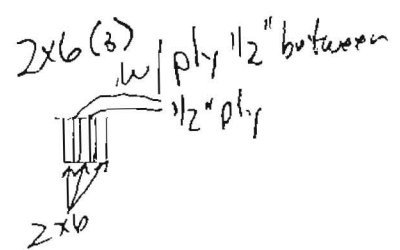 2x6 (3)
w/ ply 1/2" between
1/2" ply
2x6